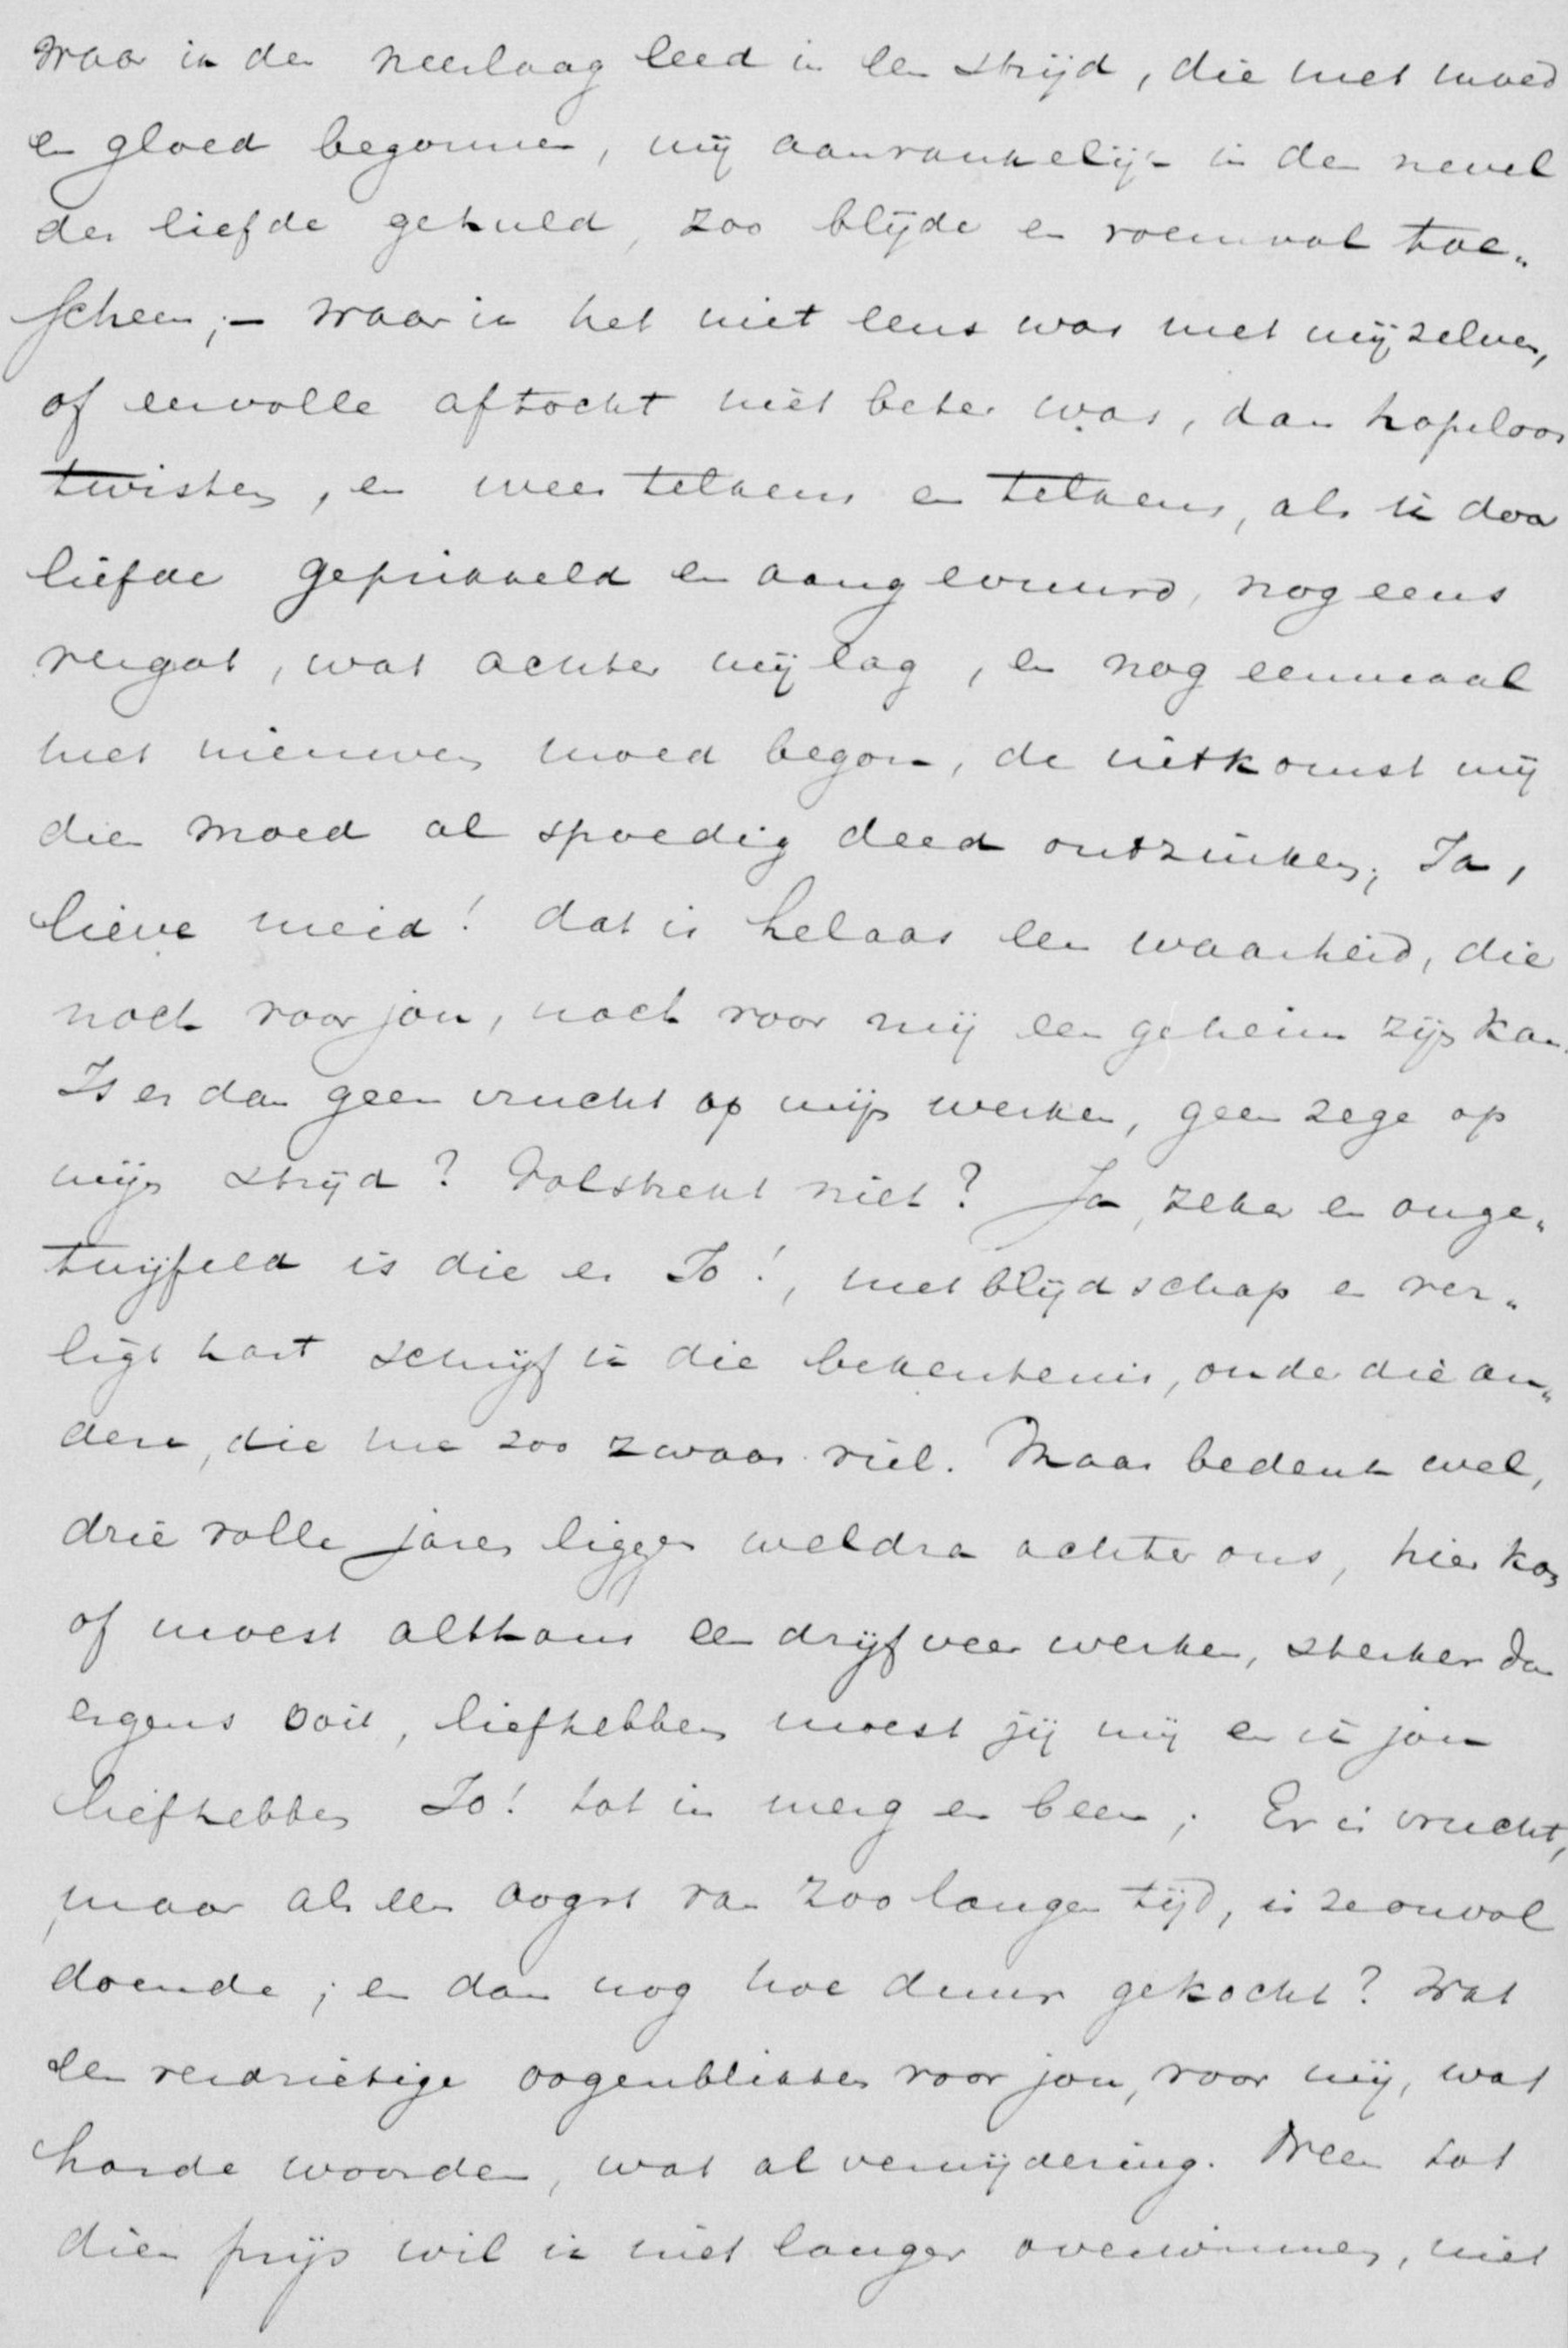 waar ik de neerlaag leed in een strijd, die met moed
en gloed begonnen, mij aanvankelijk in den nevel
der liefde gehuld, zoo blijde en roemvol toe„
scheen; – waar ik het niet eens was met mijzelven,
of eervolle aftocht niet beter was, dan hopeloos
twisten, en weer telkens en telkens, als ik door
liefde geprikkeld en aangevuurd, nog eens
vergat, wat achter mij lag, en nog eenmaal
met nieuwen moed begon, de uitkomst mij
dien moed al spoedig deed ontzinken; Ja,
lieve meid! dat is helaas een waarheid, die
noch voor jou, noch voor mij een geheim zijn kan.
Is er dan geen vrucht op mijn werken, geen zege op
mijn strijd? Volstrekt niet? Ja, zeker en onge„
twijfeld is die er Jo!, met blijdschap en ver„
ligt hart schrijf ik die bekentenis, onder die an„
dere, die me zoo zwaar viel. Maar bedenk wel,
drie volle jaren liggen weldra achter ons, hier kon
of moest althans een drijfveer werken, sterker dan
ergens ooit, liefhebben moest jij mij en ik jou
liefhebben Jo! tot in merg en been; Er is vrucht,
maar als een oogst van zoo langen tijd, is ze onvol
doende; en dan nog hoe duur gekocht? Wat
een verdrietige oogenblikken voor jou, voor mij, wat
harde woorden, wat al verwijdering. Neen tot
dien prijs wil ik niet langer overwinnen, niet